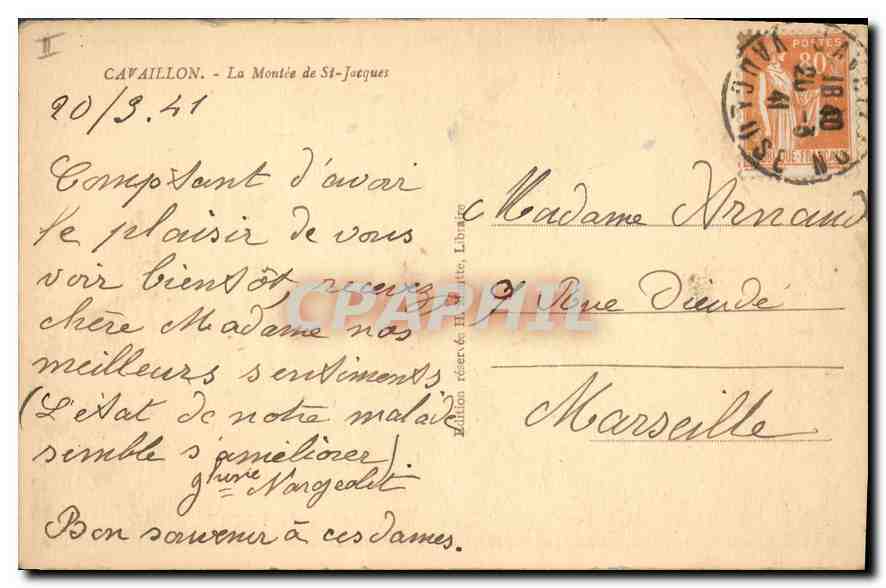 II
CAVAILLON. - La Montée de St-Jacques
20/3.41
Comptant d'avoir
le plaisir de vous
voir bientôt, recevez
chère Madame nos
meilleurs sentiments
(L'état de notre malade
semble s'améliorer)
Bon souvenir à ces dames.
Edition réservée H. Librairie
Madame Arnaud
Rue Dieudé
Marseille
POSTES
80c
VAUCLUSE
18 40
20 - 3
41
CPAPHIL